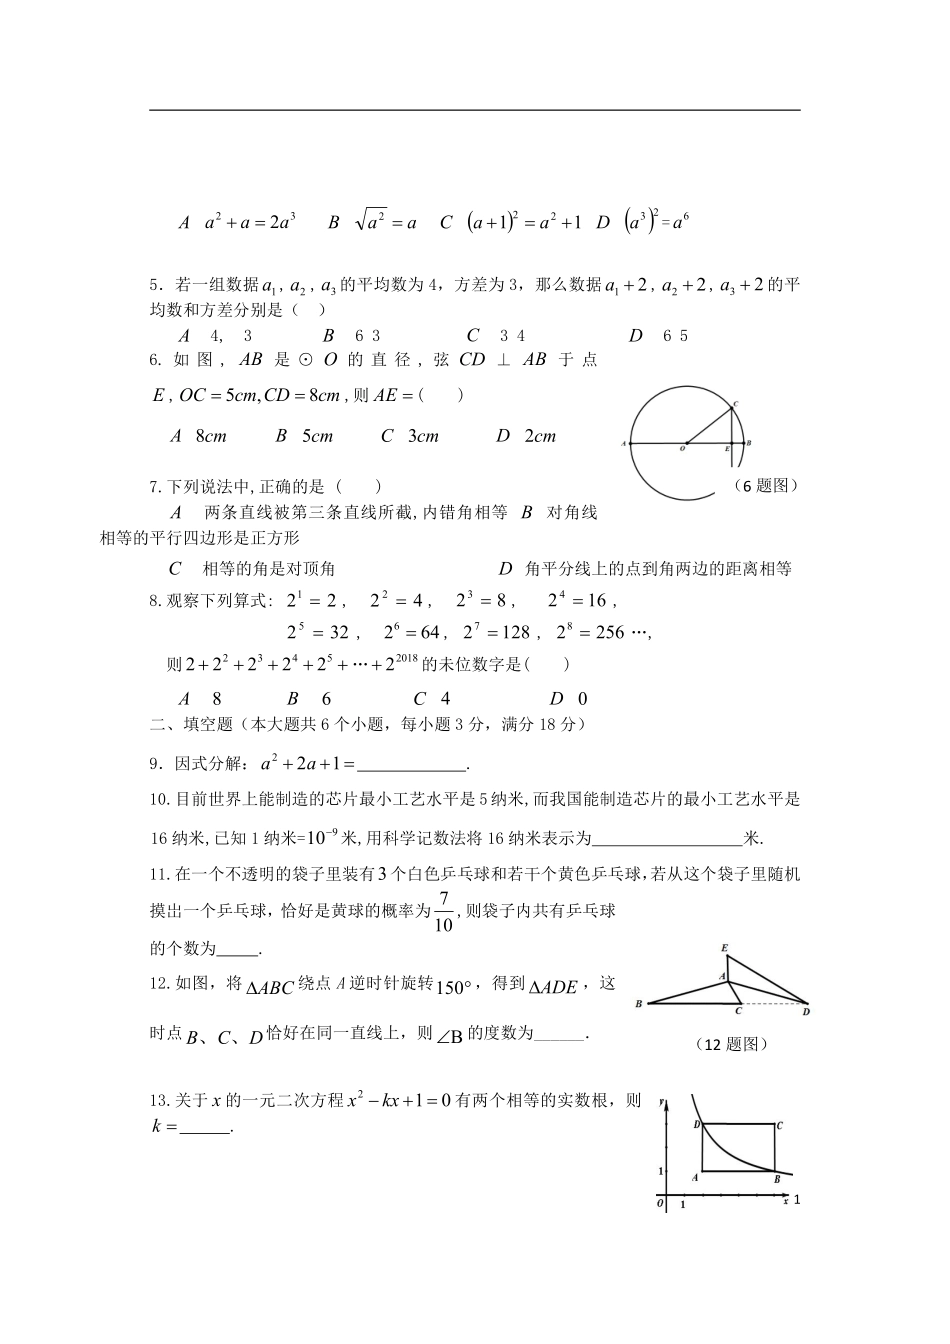 A a²+a=2a³ B √a²=a C (a+1)²=a²+1 D (a³)²=a⁶
5. 若一组数据a₁,a₂,a₃的平均数为4，方差为3，那么数据a₁+2,a₂+2,a₃+2的平
均数和方差分别是（ ）
A 4, 3 B 6 3 C 3 4 D 6 5
6. 如图, AB 是⊙O 的直径, 弦 CD ⊥ AB 于点
E,OC=5cm,CD=8cm,则AE=( )
A 8cm B 5cm C 3cm D 2cm
C
A O E B
（6题图）
7.下列说法中,正确的是 ( )
A 两条直线被第三条直线所截,内错角相等 B 对角线
相等的平行四边形是正方形
C 相等的角是对顶角 D 角平分线上的点到角两边的距离相等
8.观察下列算式: 2¹=2, 2²=4, 2³=8, 2⁴=16,
2⁵=32, 2⁶=64, 2⁷=128, 2⁸=256 …,
则2+2²+2³+2⁴+2⁵+…+2²⁰¹⁸的未位数字是( )
A 8 B 6 C 4 D 0
二、填空题（本大题共6个小题，每小题3分，满分18分）
9．因式分解：a²+2a+1=____________.
10.目前世界上能制造的芯片最小工艺水平是5纳米,而我国能制造芯片的最小工艺水平是
16纳米,已知1纳米=10⁻⁹米,用科学记数法将16纳米表示为________________米.
11.在一个不透明的袋子里装有3个白色乒乓球和若干个黄色乒乓球,若从这个袋子里随机
摸出一个乒乓球，恰好是黄球的概率为7/10,则袋子内共有乒乓球
的个数为_____.
12.如图，将ΔABC绕点A逆时针旋转150°，得到ΔADE，这
时点B、C、D恰好在同一直线上，则∠B的度数为______.
E
A
B C D
（12题图）
13.关于x的一元二次方程x²-kx+1=0有两个相等的实数根，则
k=______.
y
D C
1 A B
O 1 x 1